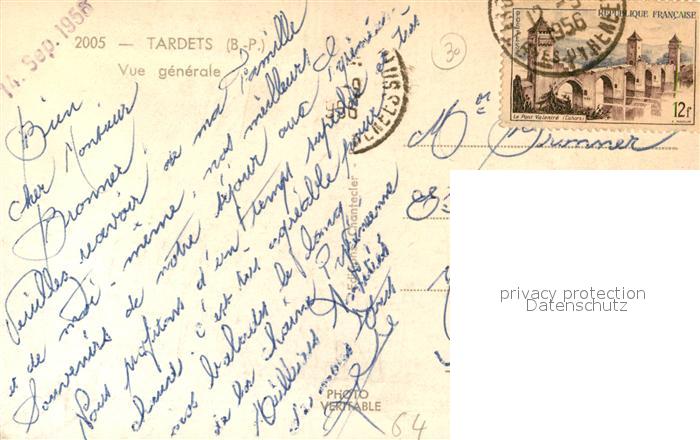 14. Sep. 1956
2005 — TARDETS (B.-P.)
Vue générale
30
RÉPUBLIQUE FRANÇAISE
1956
Le Pont Valentré (Cahors)
12f
Bien
cher Monsieur
Bronner,
Veuillez recevoir, de ma famille
et de moi-même, nos meilleurs
souvenirs de notre séjour aux Pyrénées.
Nous profitons d'un temps superbe et très
chaud, c'est très agréable pour
nos balades le long
de la chaîne Pyrénéenne
Meilleures Amitiés
de nous tous
Mr Bronner
Editions Chantecler
PHOTO
VERITABLE
64
privacy protection
Datenschutz